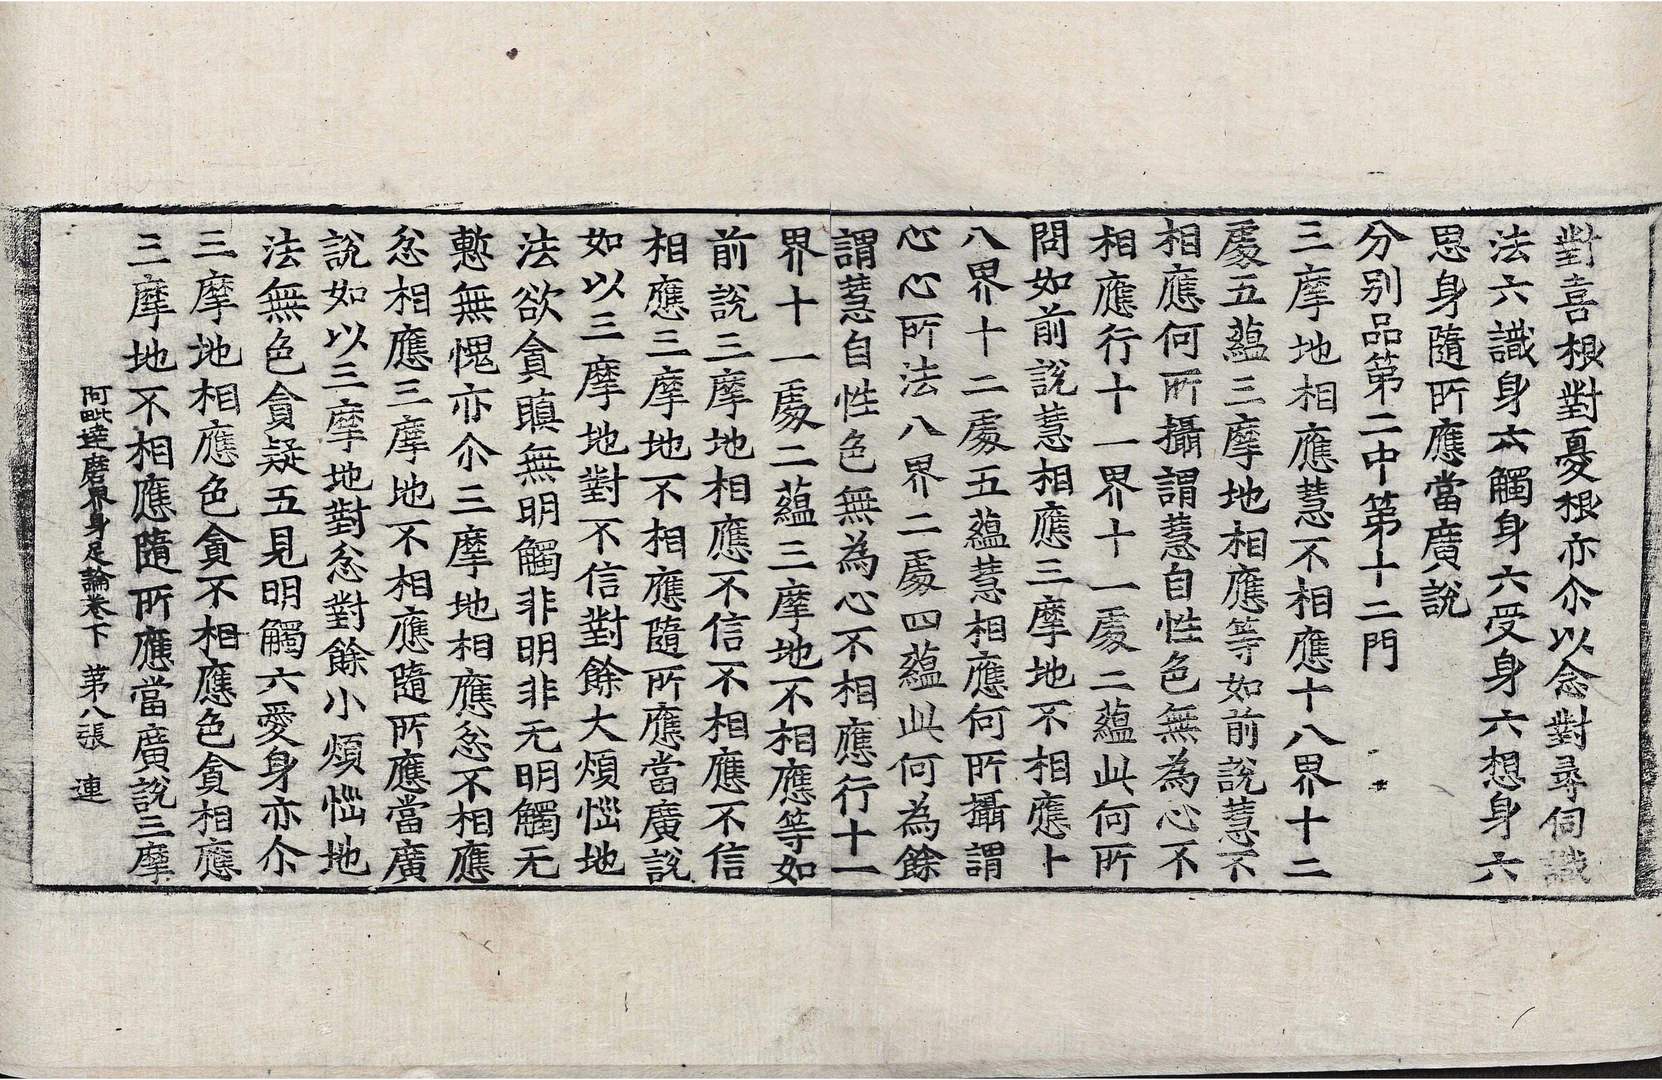 對喜根對憂根亦尒以念對尋伺識
法六識身六觸身六受身六想身六
思身隨所應當廣說
分別品第二中第十二門
三摩地相應慧不相應十八界十二
處五蘊三摩地相應等如前說慧不
相應何所攝謂慧自性色無為心不
相應行十一界十一處二蘊此何所
問如前說慧相應三摩地不相應十
八界十二處五蘊慧相應何所攝謂
心心所法八界二處四蘊此何為餘
謂慧自性色無為心不相應行十一
界十一處二蘊三摩地不相應等如
前說三摩地相應不信不相應不信
相應三摩地不相應隨所應當廣說
如以三摩地對不信對餘大煩惱地
法欲貪瞋無明觸非明非无明觸无
慙無愧亦尒三摩地相應忿不相應
忿相應三摩地不相應隨所應當廣
說如以三摩地對忿對餘小煩惱地
法無色貪疑五見明觸六愛身亦尒
三摩地相應色貪不相應色貪相應
三摩地不相應隨所應當廣說三摩
阿毗達磨界身足論卷下 第八張 連